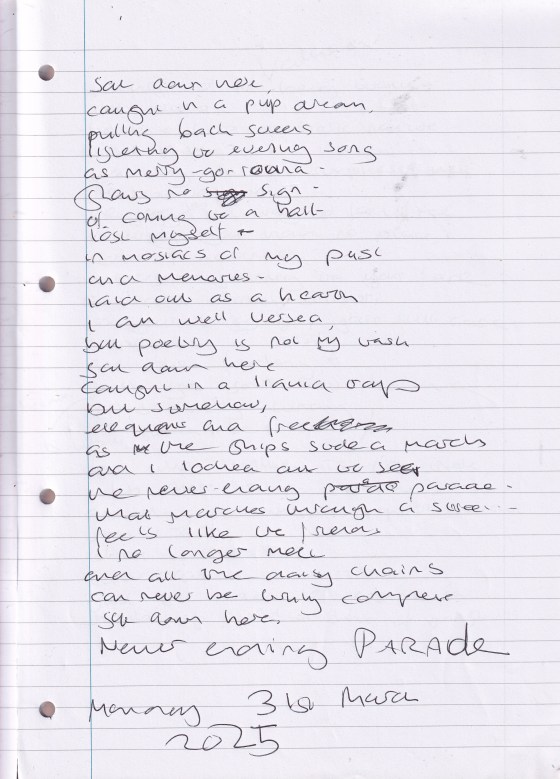 Sat down here,
caught in a pulp dream,
pulling back screens
listening to evening song
as merry-go-round -
shows no sign -
of coming to a halt
lost myself
in mosiacs of my past
and memories -
laid out as a hearth
I am well versed,
but poetry is not my
sat down here
caught in a liquid
but somehow,
and free
as the ships
and I looked out to see
the never-ending parade -
that marches through a
feels like the friends
I no longer need
and all the daisy chains
can never be truly complete
sat down here.
Never ending PARADE
Monday 31st March
2025